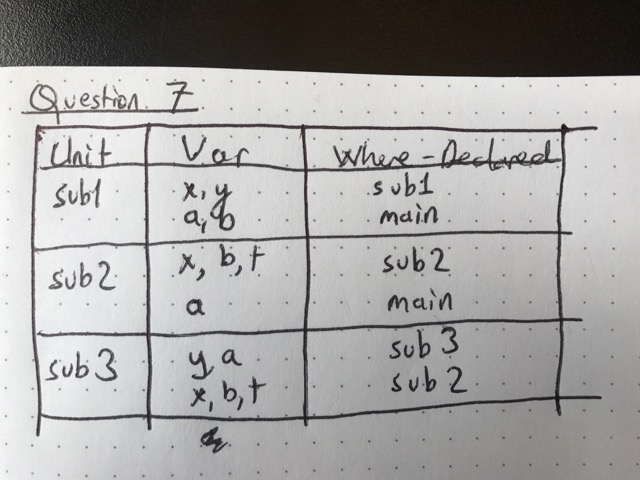 Question 7
Unit Var Where-Declared
sub1 x, y sub1
a, b main
sub2 x, b, t sub2
a main
sub3 y, a sub3
x, b, t sub2